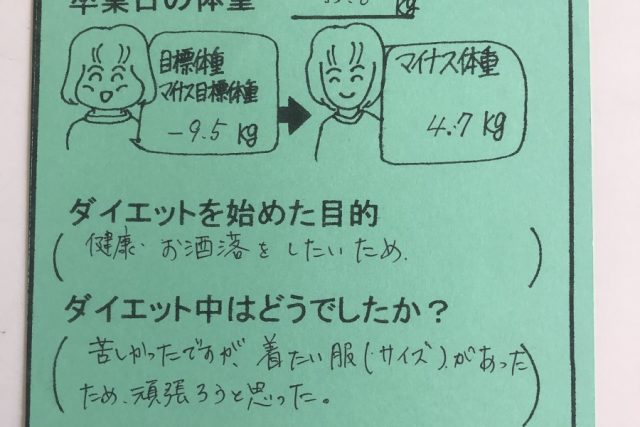 卒業日の体重
kg
目標体重
マイナス目標体重
-9.5 kg
マイナス体重
4.7 kg
ダイエットを始めた目的
健康・お洒落をしたいため.
ダイエット中はどうでしたか？
苦しかったですが、着たい服(サイズ)があった
ため、頑張ろうと思った。